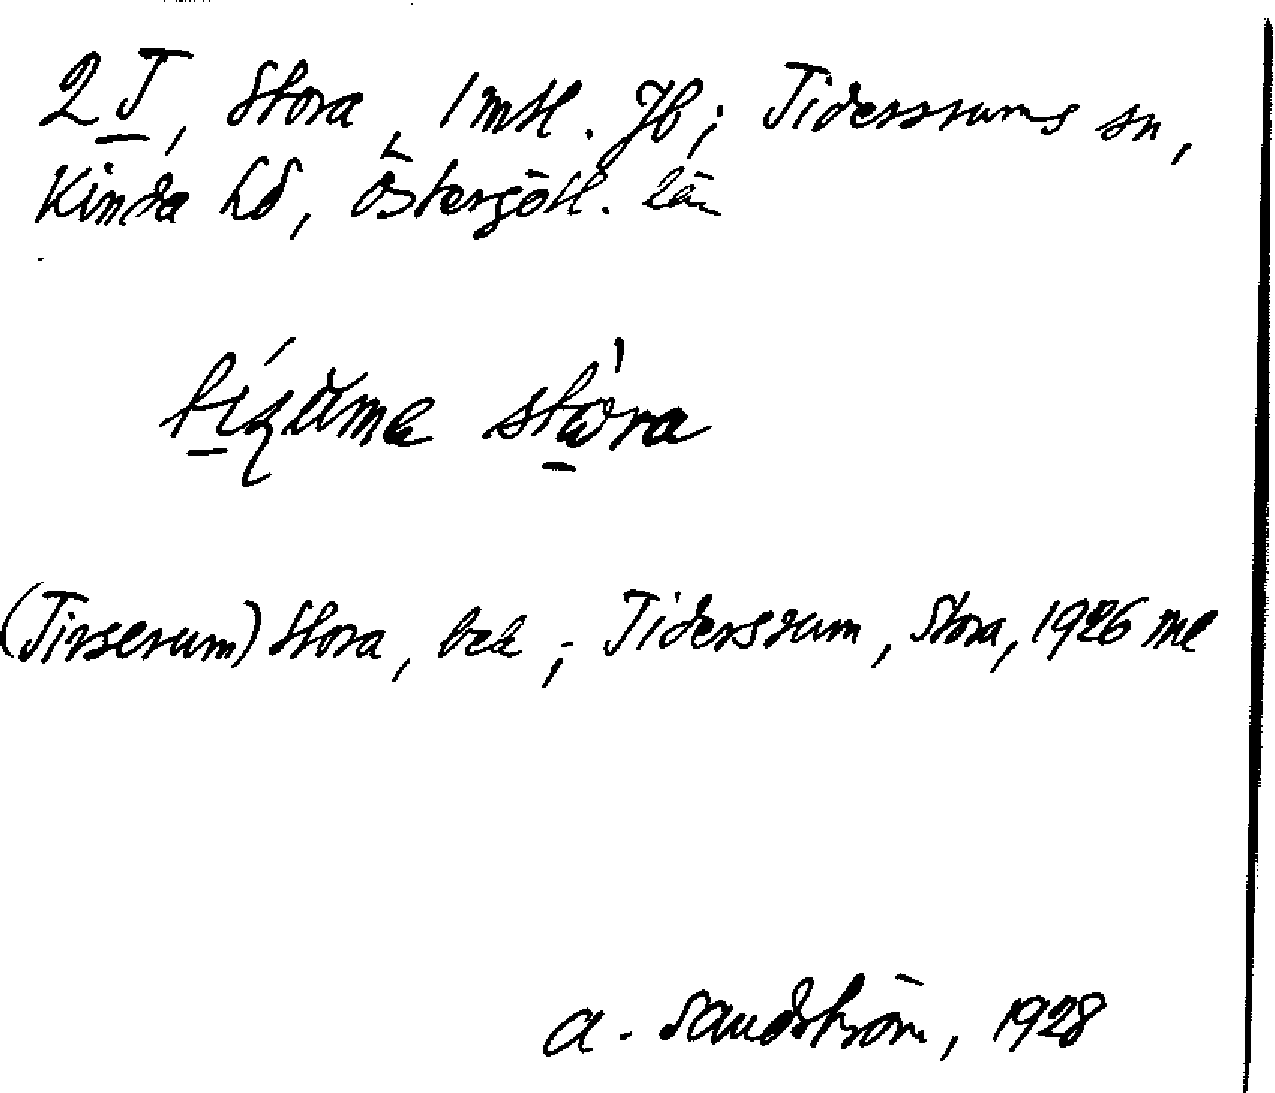 2 T, Stora, 1 mtl. Jb; Tidersrums sn,
Kinda hd, Östergötl. län
stora
(Tirserum) Stora, bek,; Tidersrum, Stora, 1926 me
A. Sandström, 1928